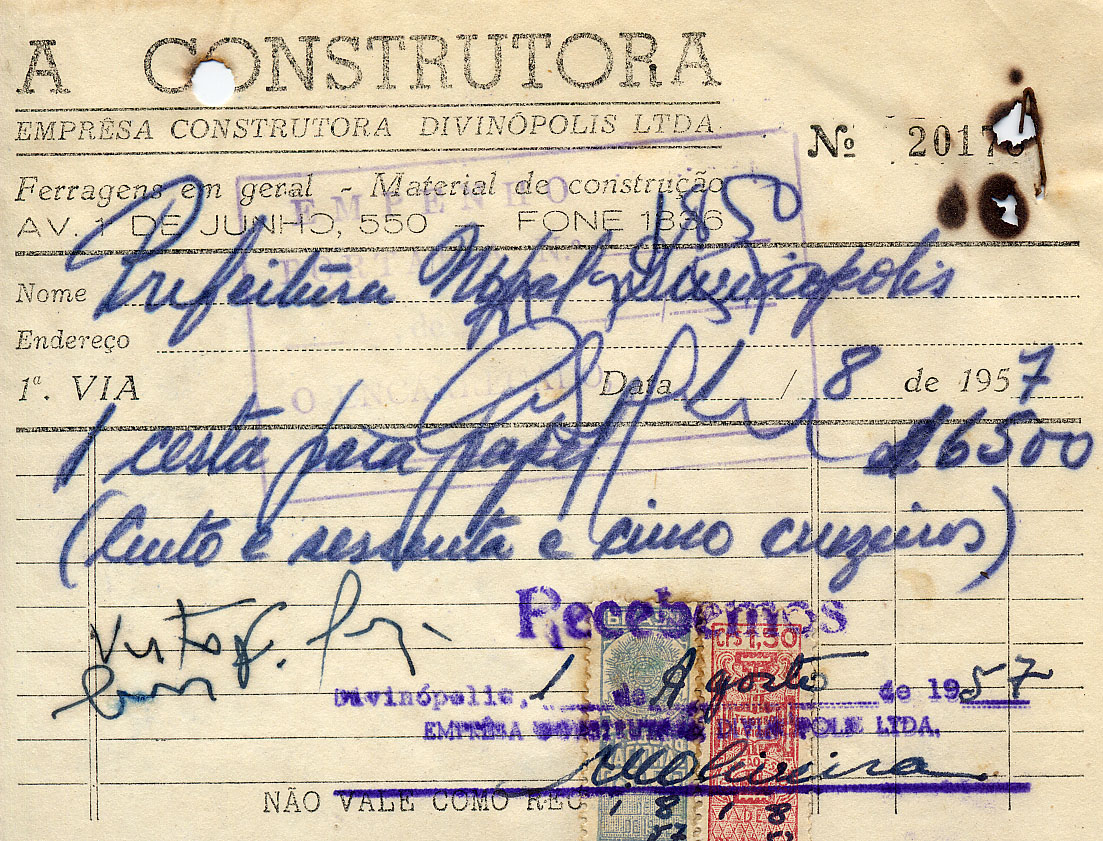 A CONSTRUTORA
EMPRÊSA CONSTRUTORA DIVINÓPOLIS LTDA.
Nº 2017
Ferragens em geral - Material de construção
AV. 1 DE JUNHO, 550 - FONE 1836
EMPENHO
1850
PORTARIA N.
Nome Prefeitura Mpal Divinópolis
de
Endereço
O ENCARREGADO
1ª. VIA Data 1 / 8 de 1957
1 cesta para papel 16500
(Cento e sessenta e cinco cruzeiros)
Recebemos
CR$1,50
Visto
Divinópolis, 1 de Agosto de 1957
EMPRÊSA CONSTRUTORA DIVINÓPOLIS LTDA.
Oliveira
NÃO VALE COMO REC
1 8 1 8
57